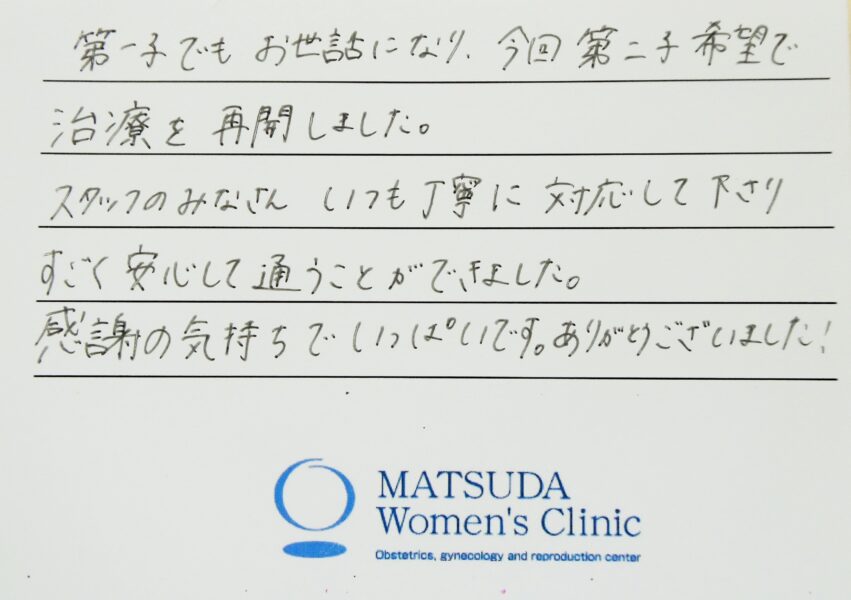 第一子でも お世話になり、今回 第二子 希望で
治療を 再開しました。
スタッフのみなさん いつも丁寧に 対応して下さり
すごく安心して通うことができました。
感謝の気持ちでいっぱいです。ありがとうございました!
MATSUDA
Women's Clinic
Obstetrics, gynecology and reproduction center